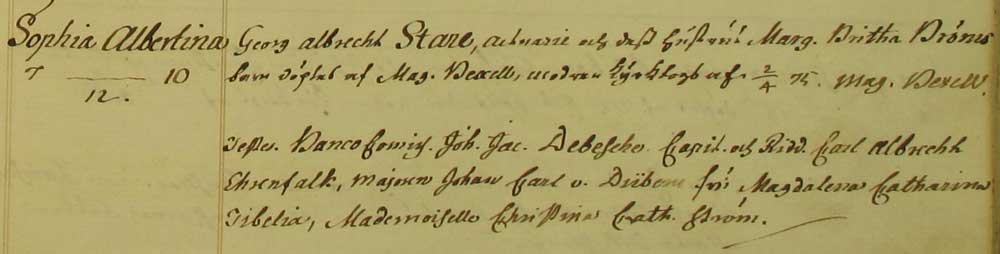 Sophia Albertina Georg albrecht Stare, actuarie och dess hustru Marg. Britha Bröms
7 — 10 barn döptes af Mag. Bexell, modren kyrktogs af 2/4 75. Mag. Bexell.
12.
Testes. Banco Comiss. Joh. Jac. Debesche Capit. och Ridd. Carl Albrecht
Ehrenfalk, Majoren Johan Carl v. Düben fru Magdalena Catharina
Tibelia, Mademoiselle Christina Cath. Ström.